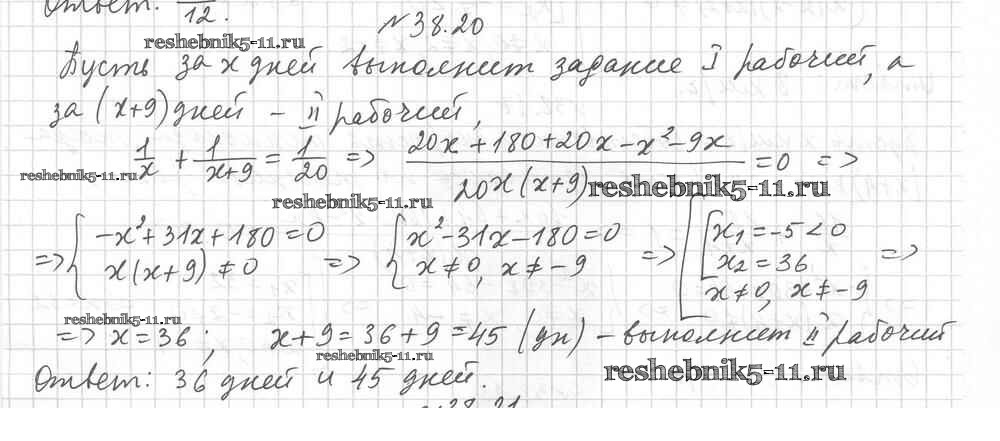 Ответ: 1/12.
№38.20
reshebnik5-11.ru
Пусть за x дней выполнит задание I рабочий, а
за (x+9) дней – II рабочий,
1/x + 1/(x+9) = 1/20 => (20x+180+20x-x²-9x)/(20x(x+9)) = 0 =>
reshebnik5-11.ru
reshebnik5-11.ru
reshebnik5-11.ru
=> { -x²+31x+180=0 => { x²-31x-180=0 => { [ x₁=-5<0 =>
x(x+9)≠0 x≠0, x≠-9 x₂=36
x≠0, x≠-9
reshebnik5-11.ru
=> x=36; x+9=36+9=45 (дн) – выполнит II рабочий
reshebnik5-11.ru
Ответ: 36 дней и 45 дней.
reshebnik5-11.ru
№38.21